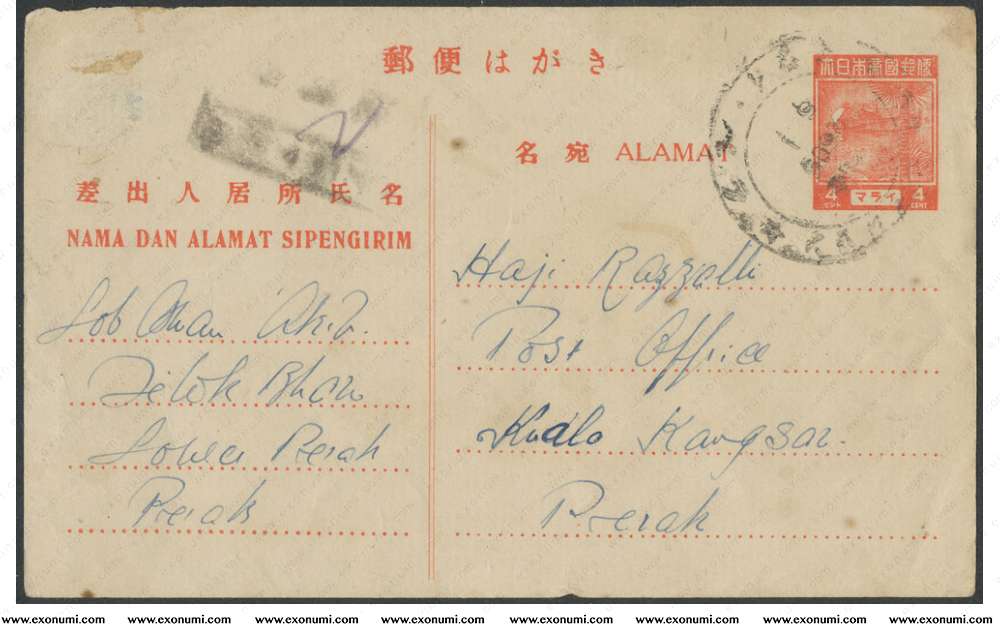 郵便はがき
大日本帝國郵便
4 セント マライ 4 CENT
差出人居所氏名
NAMA DAN ALAMAT SIPENGIRIM
Telok Bharu
Lower Perak
Perak
名宛 ALAMAT
Haji Razzalli
Post Office
Kuala Kangsar.
Perak
www.exonumi.com www.exonumi.com www.exonumi.com www.exonumi.com www.exonumi.com www.exonumi.com www.exonumi.com www.exonumi.com